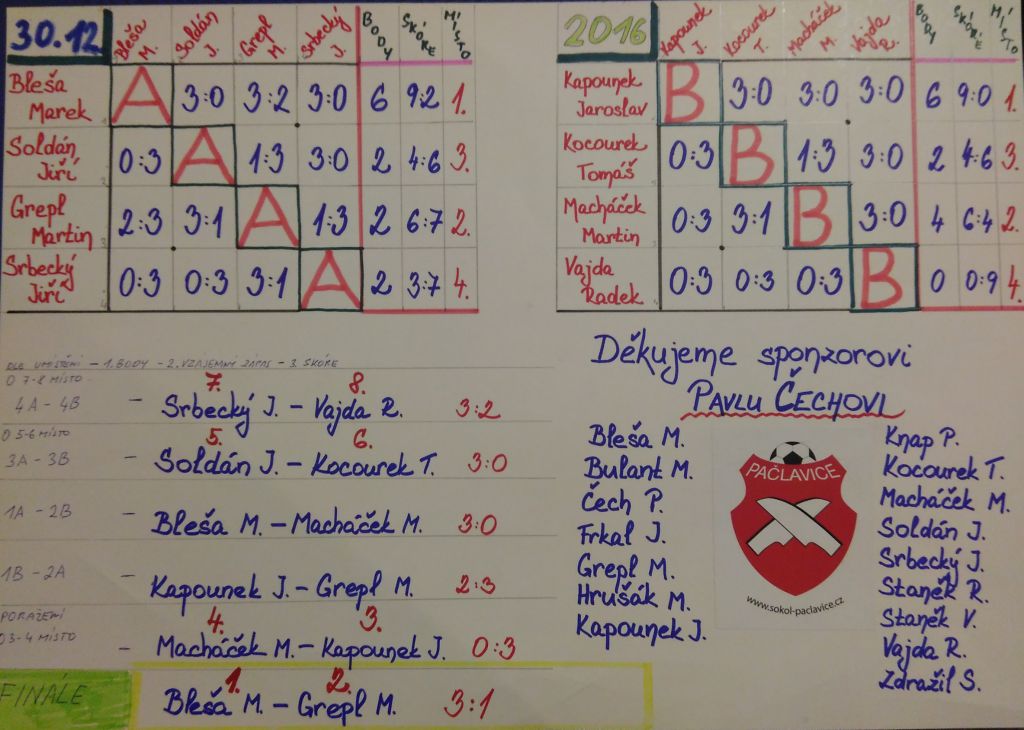 30.12 Bleša M. Soldán J. Grepl M. Srbecký J. BODY SKÓRE MÍSTO
Bleša Marek A 3:0 3:2 3:0 6 9:2 1.
Soldán Jiří 0:3 A 1:3 3:0 2 4:6 3.
Grepl Martin 2:3 3:1 A 1:3 2 6:7 2.
Srbecký Jiří 0:3 0:3 3:1 A 2 3:7 4.
2016 Kapounek J. Kocourek T. Macháček M. Vajda R. BODY SKÓRE MÍSTO
Kapounek Jaroslav B 3:0 3:0 3:0 6 9:0 1.
Kocourek Tomáš 0:3 B 1:3 3:0 2 4:6 3.
Macháček Martin 0:3 3:1 B 3:0 4 6:4 2.
Vajda Radek 0:3 0:3 0:3 B 0 0:9 4.
DLE UMÍSTĚNÍ - 1. BODY - 2. VZÁJEMNÝ ZÁPAS - 3. SKÓRE
O 7-8 MÍSTO
7. 8.
4A - 4B - Srbecký J. - Vajda R. 3:2
O 5-6 MÍSTO
5. 6.
3A - 3B - Soldán J. - Kocourek T. 3:0
1A - 2B - Bleša M. - Macháček M. 3:0
1B - 2A - Kapounek J. - Grepl M. 2:3
PORAŽENÍ
4. 3.
O 3-4 MÍSTO - Macháček M. - Kapounek J. 0:3
1. 2.
FINÁLE Bleša M. - Grepl M. 3:1
Děkujeme sponzorovi
PAVLU ČECHOVI
Bleša M.
Bulant M.
Čech P.
Frkal J.
Grepl M.
Hrušák M.
Kapounek J.
PAČLAVICE
www.sokol-paclavice.cz
Knap P.
Kocourek T.
Macháček M.
Soldán J.
Srbecký J.
Staněk R.
Staněk V.
Vajda R.
Zdražil S.